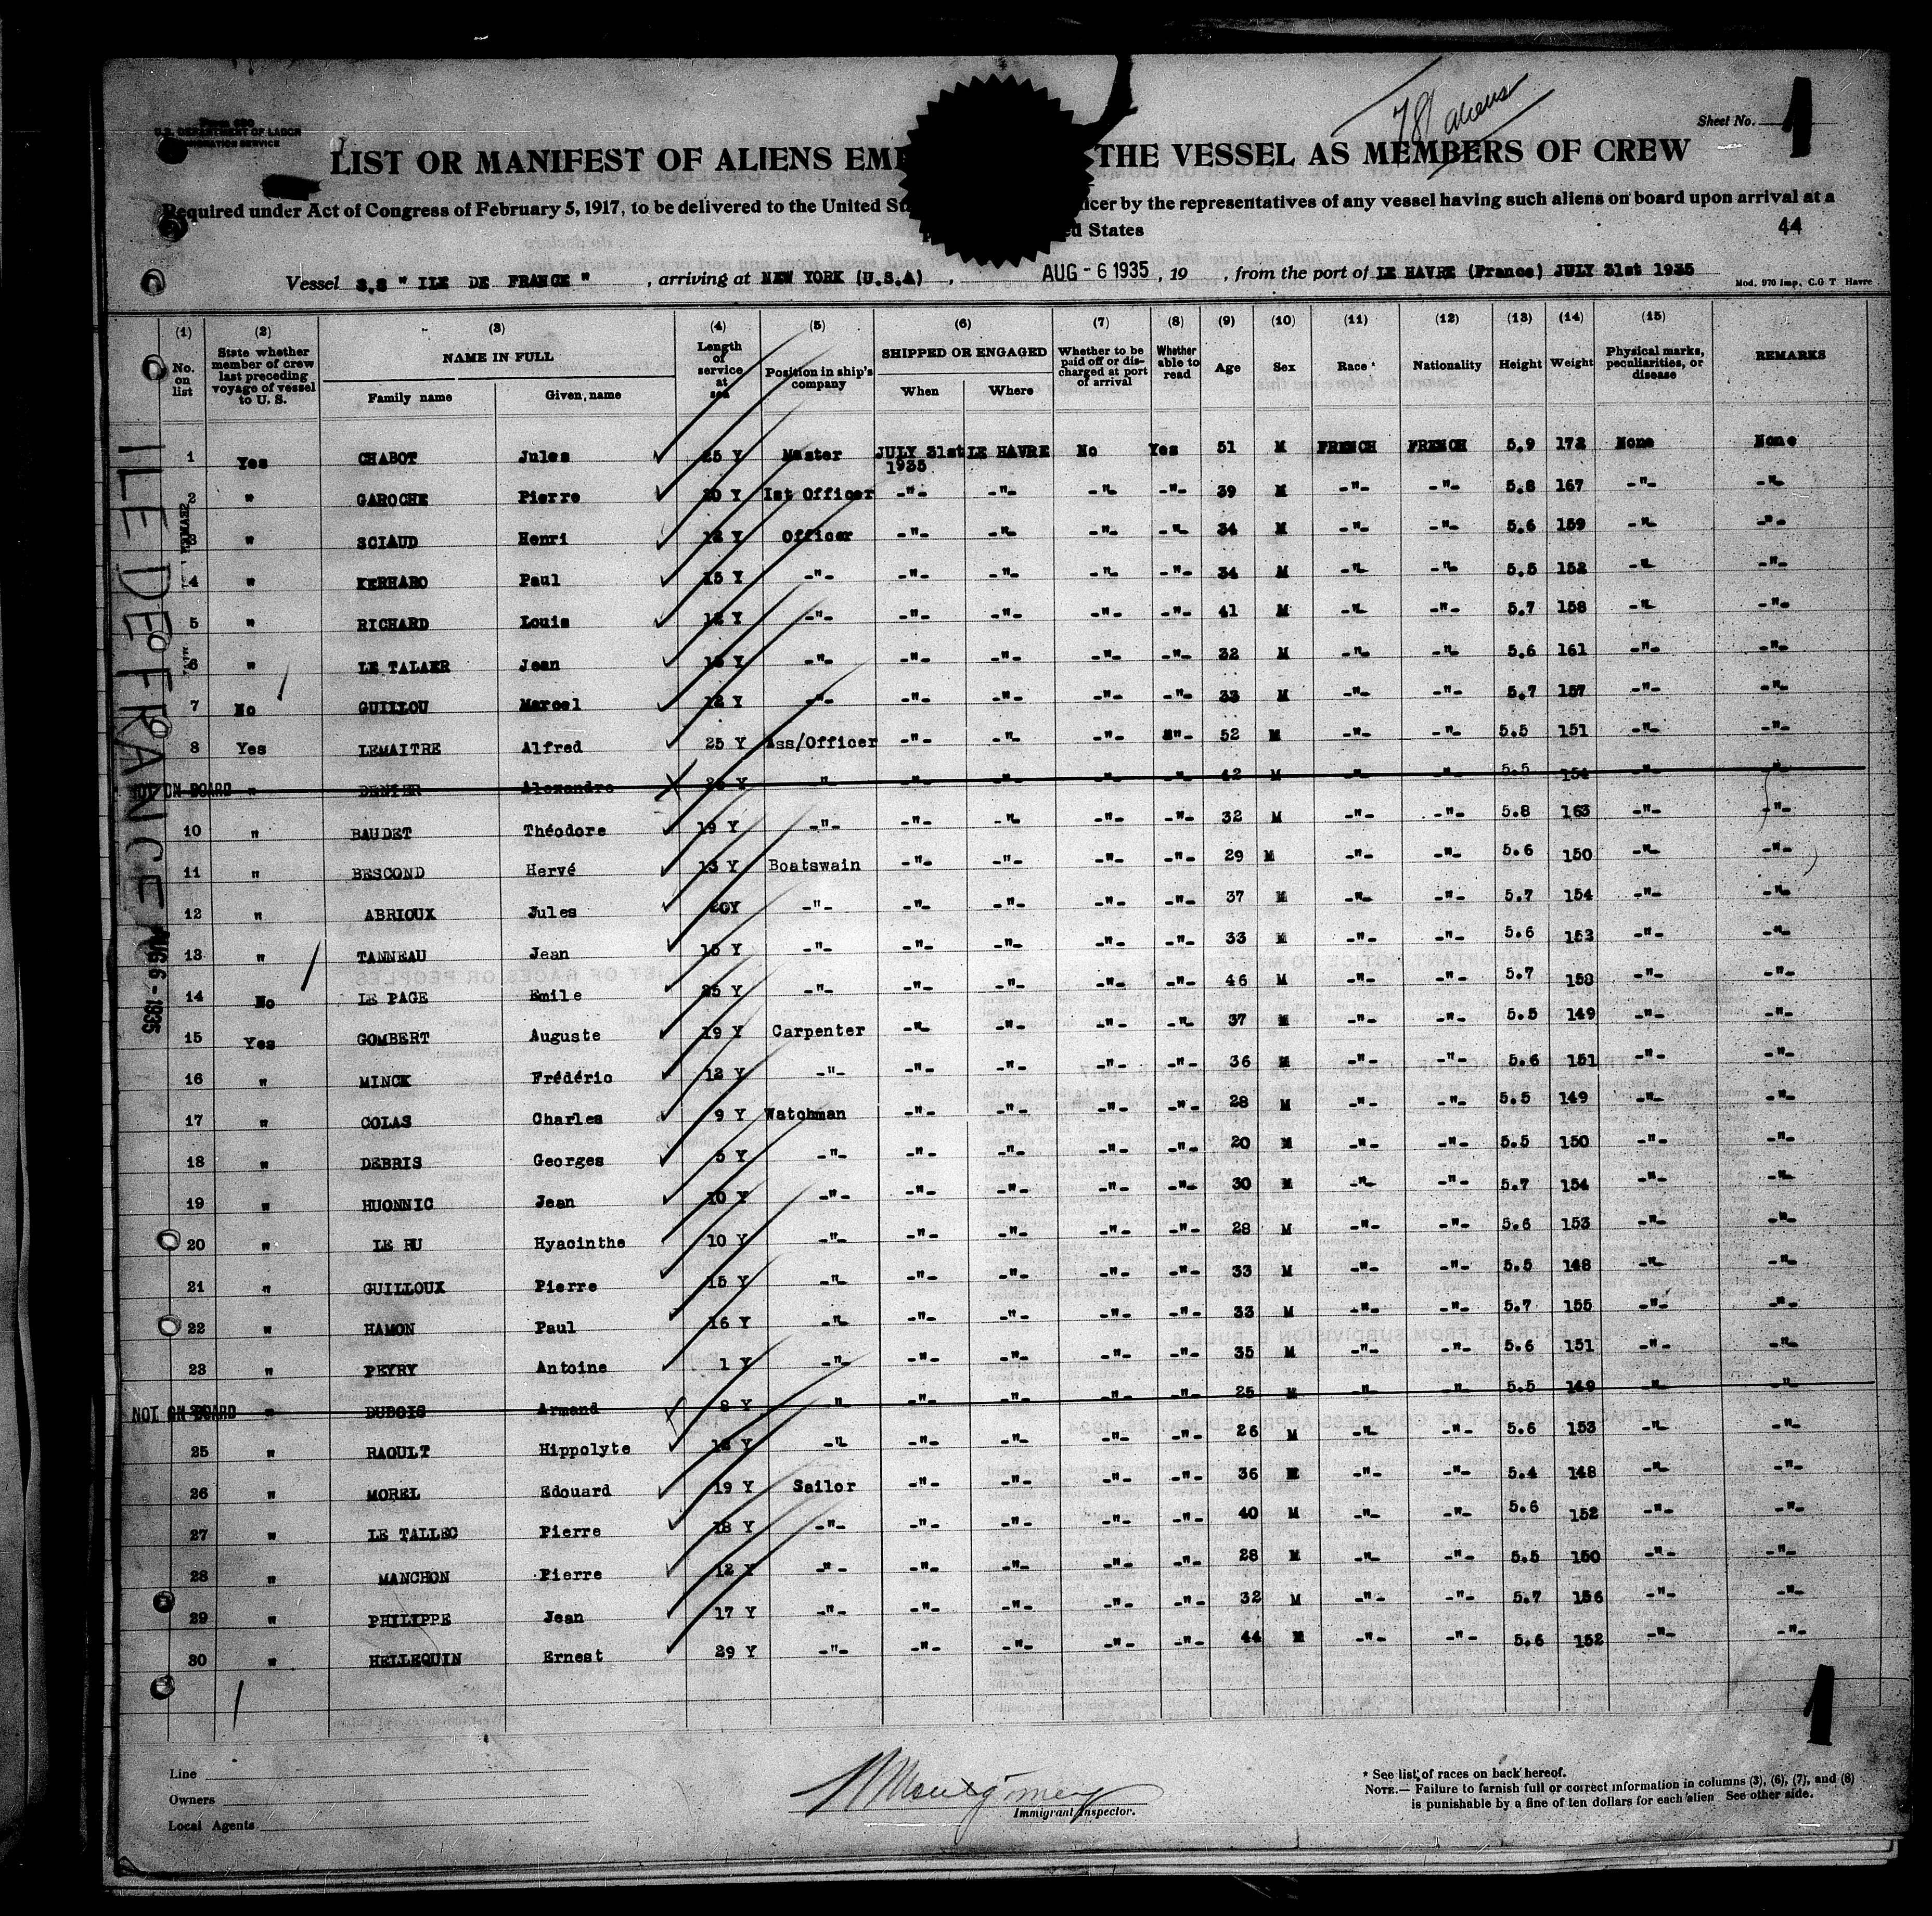 Form 680
U.S. DEPARTMENT OF LABOR
IMMIGRATION SERVICE
781 aliens
Sheet No. 1
LIST OR MANIFEST OF ALIENS THE VESSEL AS MEMBERS OF CREW
Required under Act of Congress of February 5, 1917, to be delivered to the United by the representatives of any vessel having such aliens on board upon arrival at a
States
44
Vessel S.S " ILE DE FRANCE " , arriving at NEW YORK (U.S.A) , AUG - 6 1935 , 19 , from the port of LE HAVRE (France) JULY 31st 1935
Mod. 970 Imp. C.G T Havre
(1) (2) (3) (4) (5) (6) (7) (8) (9) (10) (11) (12) (13) (14) (15)
No. on list State whether member of crew last preceding voyage of vessel to U. S. NAME IN FULL Length of service at sea Position in ship's company SHIPPED OR ENGAGED Whether to be paid off or discharged at port of arrival Whether able to read Age Sex Race * Nationality Height Weight Physical marks, peculiarities, or disease REMARKS
Family name Given name When Where
1 Yes CHABOT Jules 25 Y Master JULY 31st 1935 LE HAVRE No Yes 51 M FRENCH FRENCH 5.9 172 None None
2 " GAROCHE Pierre 20 Y Ist Officer -"- -"- -"- -"- 39 M -"- -"- 5.8 167 -"- -"-
3 " SCIAUD Henri Y Officer -"- -"- -"- -"- 34 M -"- -"- 5.6 159 -"- -"-
4 " KERHARO Paul 15 Y -"- -"- -"- -"- -"- 34 M -"- -"- 5.5 152 -"- -"-
5 " RICHARD Louis 12 Y -"- -"- -"- -"- -"- 41 M -"- -"- 5.7 158 -"- -"-
6 " LE TALAER Jean Y -"- -"- -"- -"- -"- 32 M -"- -"- 5.6 161 -"- -"-
7 No GUILLOU Marcel 12 Y -"- -"- -"- -"- -"- 33 M -"- -"- 5.7 157 -"- -"-
8 Yes LEMAITRE Alfred 25 Y Ass/Officer -"- -"- -"- -"- 52 M -"- -"- 5.5 151 -"- -"-
NOT ON BOARD " DENIER Alexandre Y " -"- -"- -"- -"- 42 M -"- -"- 5.5 154 -"- -"-
10 " BAUDET Théodore 19 Y -"- -"- -"- -"- -"- 32 M -"- -"- 5.8 163 -"- -"-
11 " BESCOND Hervé 13 Y Boatswain -"- -"- -"- -"- 29 M -"- -"- 5.6 150 -"- -"-
12 " ABRIOUX Jules 20Y -"- -"- -"- -"- -"- 37 M -"- -"- 5.7 154 -"- -"-
13 " TANNEAU Jean 15 Y -"- -"- -"- -"- -"- 33 M -"- -"- 5.6 153 -"- -"-
14 No LE PAGE Emile 25 Y -"- -"- -"- -"- -"- 46 M -"- -"- 5.7 158 -"- -"-
15 Yes GOMBERT Auguste 19 Y Carpenter -"- -"- -"- -"- 37 M -"- -"- 5.5 149 -"- -"-
16 " MINCK Frédéric 12 Y -"- -"- -"- -"- -"- 36 M -"- -"- 5.6 151 -"- -"-
17 " COLAS Charles 9 Y Watchman -"- -"- -"- -"- 28 M -"- -"- 5.5 149 -"- -"-
18 " DEBRIS Georges 5 Y -"- -"- -"- -"- -"- 20 M -"- -"- 5.5 150 -"- -"-
19 " HUONNIC Jean 10 Y -"- -"- -"- -"- -"- 30 M -"- -"- 5.7 154 -"- -"-
20 " LE HU Hyacinthe 10 Y -"- -"- -"- -"- -"- 28 M -"- -"- 5.6 153 -"- -"-
21 " GUILLOUX Pierre 15 Y -"- -"- -"- -"- -"- 33 M -"- -"- 5.5 148 -"- -"-
22 " HAMON Paul 16 Y -"- -"- -"- -"- -"- 33 M -"- -"- 5.7 155 -"- -"-
23 " PEYRY Antoine 1 Y -"- -"- -"- -"- -"- 35 M -"- -"- 5.6 151 -"- -"-
NOT ON BOARD " DUBOIS Armand 8 Y " -"- -"- -"- -"- 25 M -"- -"- 5.5 149 -"- -"-
25 " RAOULT Hippolyte 12 Y -"- -"- -"- -"- -"- 26 M -"- -"- 5.6 153 -"- -"-
26 " MOREL Edouard 19 Y Sailor -"- -"- -"- -"- 36 M -"- -"- 5.4 148 -"- -"-
27 " LE TALLEC Pierre 18 Y -"- -"- -"- -"- -"- 40 M -"- -"- 5.6 152 -"- -"-
28 " MANCHON Pierre 12 Y -"- -"- -"- -"- -"- 28 M -"- -"- 5.5 150 -"- -"-
29 " PHILIPPE Jean 17 Y -"- -"- -"- -"- -"- 32 M -"- -"- 5.7 156 -"- -"-
30 " HELLEQUIN Ernest 29 Y -"- -"- -"- -"- -"- 44 M -"- -"- 5.6 152 -"- -"-
ILE DE FRANCE
AUG 6 - 1935
1
Line
Owners
Local Agents
Montgomery
Immigrant Inspector.
* See list of races on back hereof.
NOTE.— Failure to furnish full or correct information in columns (3), (6), (7), and (8)
is punishable by a fine of ten dollars for each alien See other side.